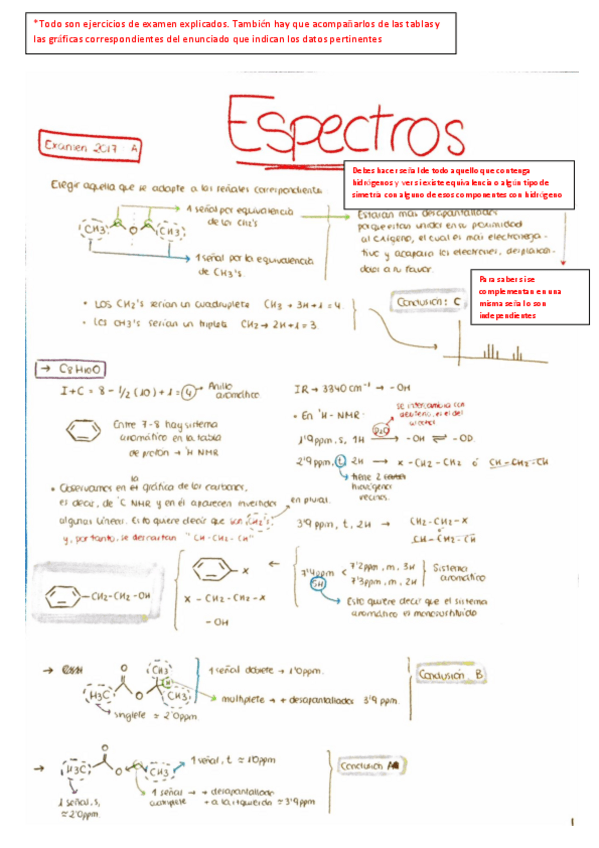 *Todo son ejercicios de examen explicados. También hay que acompañarlos de las tablas y
las gráficas correspondientes del enunciado que indican los datos pertinentes
Espectros
Examen 2017 A
Debes hacer señal de todo aquello que contenga
hidrógenos y ver si existe equivalencia o algún tipo de
simetría con alguno de esos componentes con hidrógeno
Elegir aquella que se adapte a las señales correspondiente
1 señal por equivalencia
de los CH2's
CH3 O CH3
1 señal por la equivalencia
de CH3's.
Estarán más desapantallados
porque están unidos en su proximidad
al oxígeno, el cual es más electronega-
tivo y acapara los electrones, desplazán-
dolos a su favor.
Para saber si se
complementan en una
misma señal o son
independientes
• LOS CH2's serían un cuadruplete CH3 → 3H+1 = 4.
• Los CH3's serían un triplete CH2 → 2H+1 = 3.
Conclusión: C
→ C8H10O
I+C = 8 - 1/2 (10) + 1 = 4 → Anillo
aromático
Entre 7-8 hay sistema
aromático en la tabla
de protón → 1H NMR
IR → 3340 cm-1 → -OH
• En 1H-NMR:
se intercambia con
deuterio, es el del
alcohol
D2O
1'9 ppm, s, 1H → -OH ⇌ -OD.
2'9 ppm, t, 2H → X-CH2-CH2 ó CH-CH2-CH
tiene 2
hidrógenos
vecinos.
3'9 ppm, t, 2H → CH2-CH2-X
CH-CH2-CH
• Observamos en la gráfica de los carbonos,
es decir, de 13C NMR y en él aparecen invertidas
algunas líneas. Esto quiere decir que son CH2's, → en plural.
y, por tanto, se descartan "CH-CH2-CH"
-CH2-CH2-OH
-X
X-CH2-CH2-X
-OH
7'4 ppm < 7'2 ppm, m, 3H
7'3 ppm, m, 2H
5H
Sistema
aromático
Esto quiere decir que el sistema
aromático es monosustituido
→
CH3
H3C O H CH3
O
singlete ≈ 2'0 ppm
1 señal doblete → 1'0 ppm.
multiplete → + desapantallados 3'9 ppm.
Conclusión B
→ H3C O CH3
O
1 señal, t ≈ 1'0 ppm
1 señal, s,
≈ 2'0 ppm.
1 señal → + desapantallado
cuadruplete → a la izquierda ≈ 3'9 ppm.
Conclusión A
1